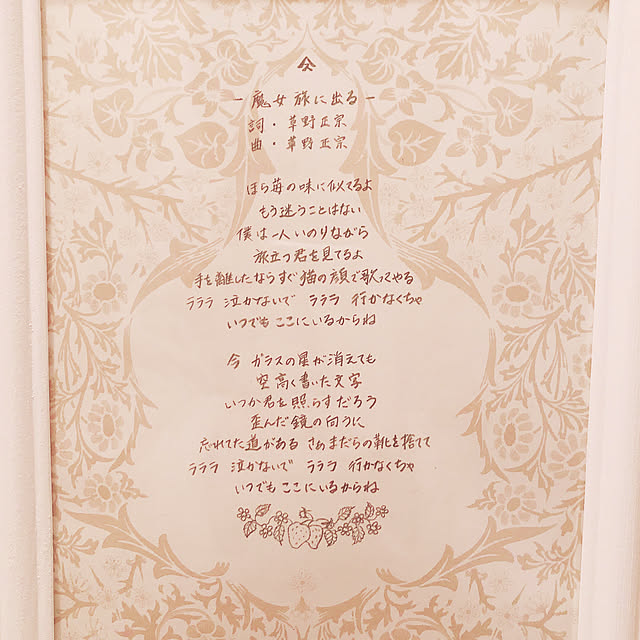 －魔女 旅に出る－
詞・草野正宗
曲・草野正宗
ほら苺の味に似てるよ
もう迷うことはない
僕は一人いのりながら
旅立つ君を見てるよ
手を離したならすぐ猫の顔で歌ってやる
ラララ 泣かないで ラララ 行かなくちゃ
いつでもここにいるからね
今 ガラスの星が消えても
空高く書いた文字
いつか君を照らすだろう
歪んだ鏡の向うに
忘れてた道がある さあまだらの靴を捨てて
ラララ 泣かないで ラララ 行かなくちゃ
いつでもここにいるからね